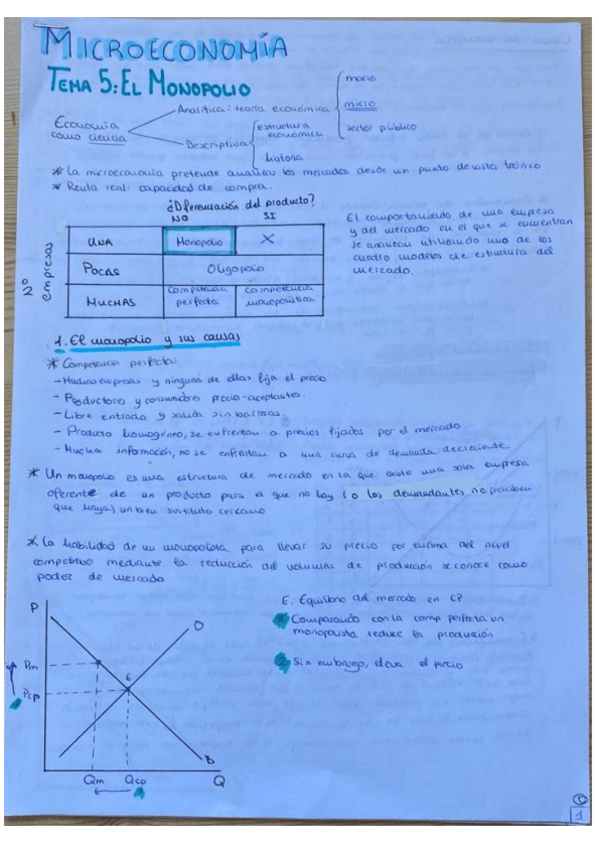 MICROECONOMÍA
TEMA 5: EL MONOPOLIO
Economía como ciencia
Analítica: teoría económica
macro
micro
sector público
Descriptiva
estructura económica
historia
* La microeconomía pretende analizar los mercados desde un punto de vista teórico
* Renta real: capacidad de compra.
¿Diferenciación del producto?
NO SI
Nº empresas
UNA Monopolio X
POCAS Oligopolio
MUCHAS competencia perfecta competencia monopolística
El comportamiento de una empresa
y del mercado en el que se encuentran
se analizan utilizando uno de los
cuatro modelos de estructura del
mercado.
1. El monopolio y sus causas
* Competencia perfecta:
- Muchas empresas y ninguna de ellas fija el precio
- Productores y consumidores precio-aceptantes.
- Libre entrada y salida sin barreras.
- Producto homogéneo, se enfrentan a precios fijados por el mercado.
- Mucha información, no se enfrentan a una curva de demanda decreciente.
* Un monopolio es una estructura de mercado en la que existe una sola empresa
oferente de un producto para el que no hay (o los demandantes no perciben
que haya) un bien sustituto cercano
* La habilidad de un monopolista para llevar su precio por encima del nivel
competitivo mediante la reducción del volumen de producción se conoce como
poder de mercado
P
O
Pm
E
Pcp
D
Qm Qcp Q
E: Equilibrio del mercado en CP
1 Comparando con la comp perfecta un
monopolista reduce la producción
2 Sin embargo, eleva el precio
1